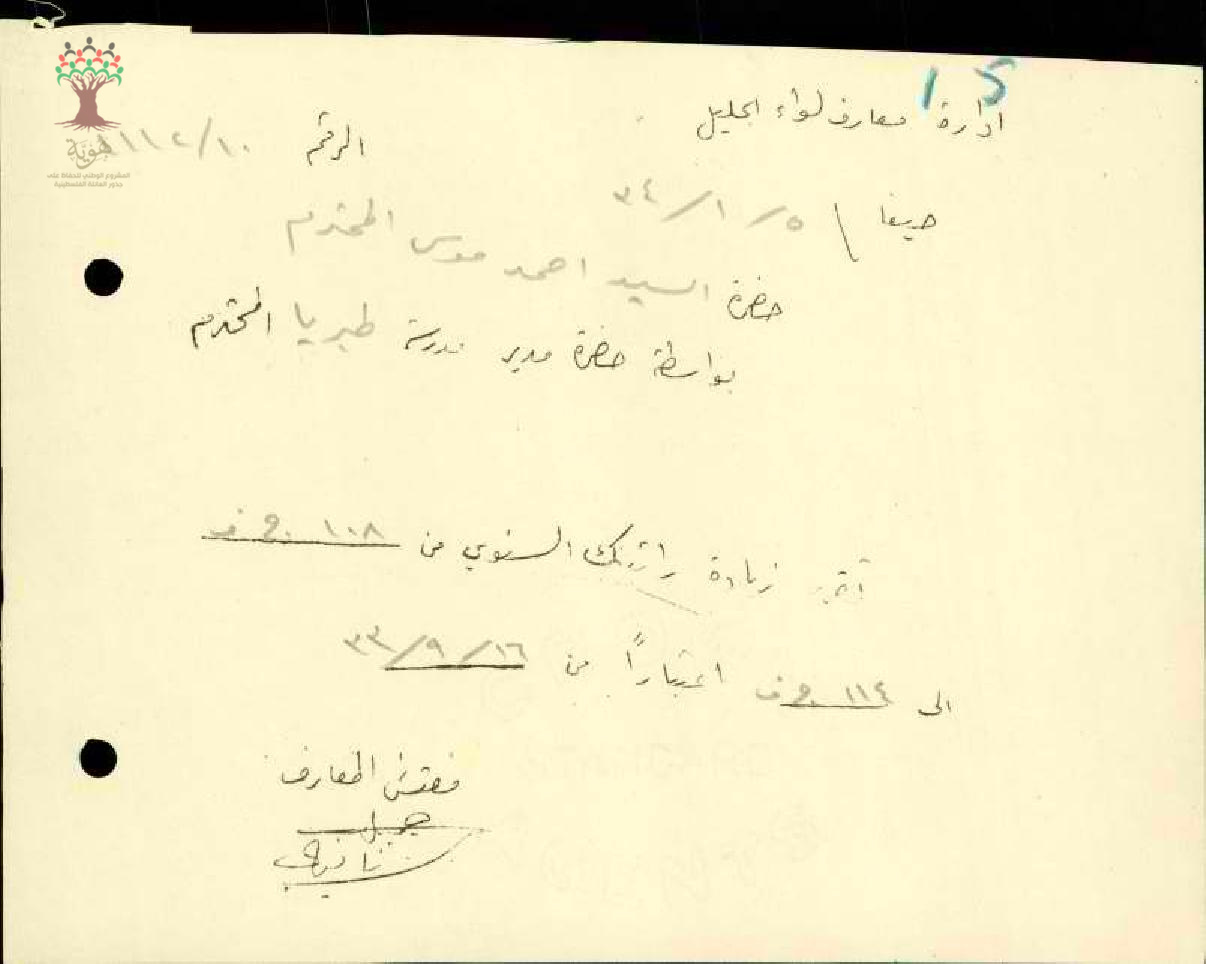 ١٥
ادارة معارف لواء الجليل
الرقم ١١٢/١٠
هوية
المشروع الوطني للحفاظ على
جذور العائلة الفلسطينية
حيفا \ ٥/١/٣٤
حضرة السيد احمد موسى المحترم
بواسطة حضرة مدير مدرسة طبريا المحترم
زيادة راتبك السنوي من ١٠٨ ج ف
الى ١١٤ ج ف اعتباراً من ١٦/٩/٣٣
مفتش المعارف